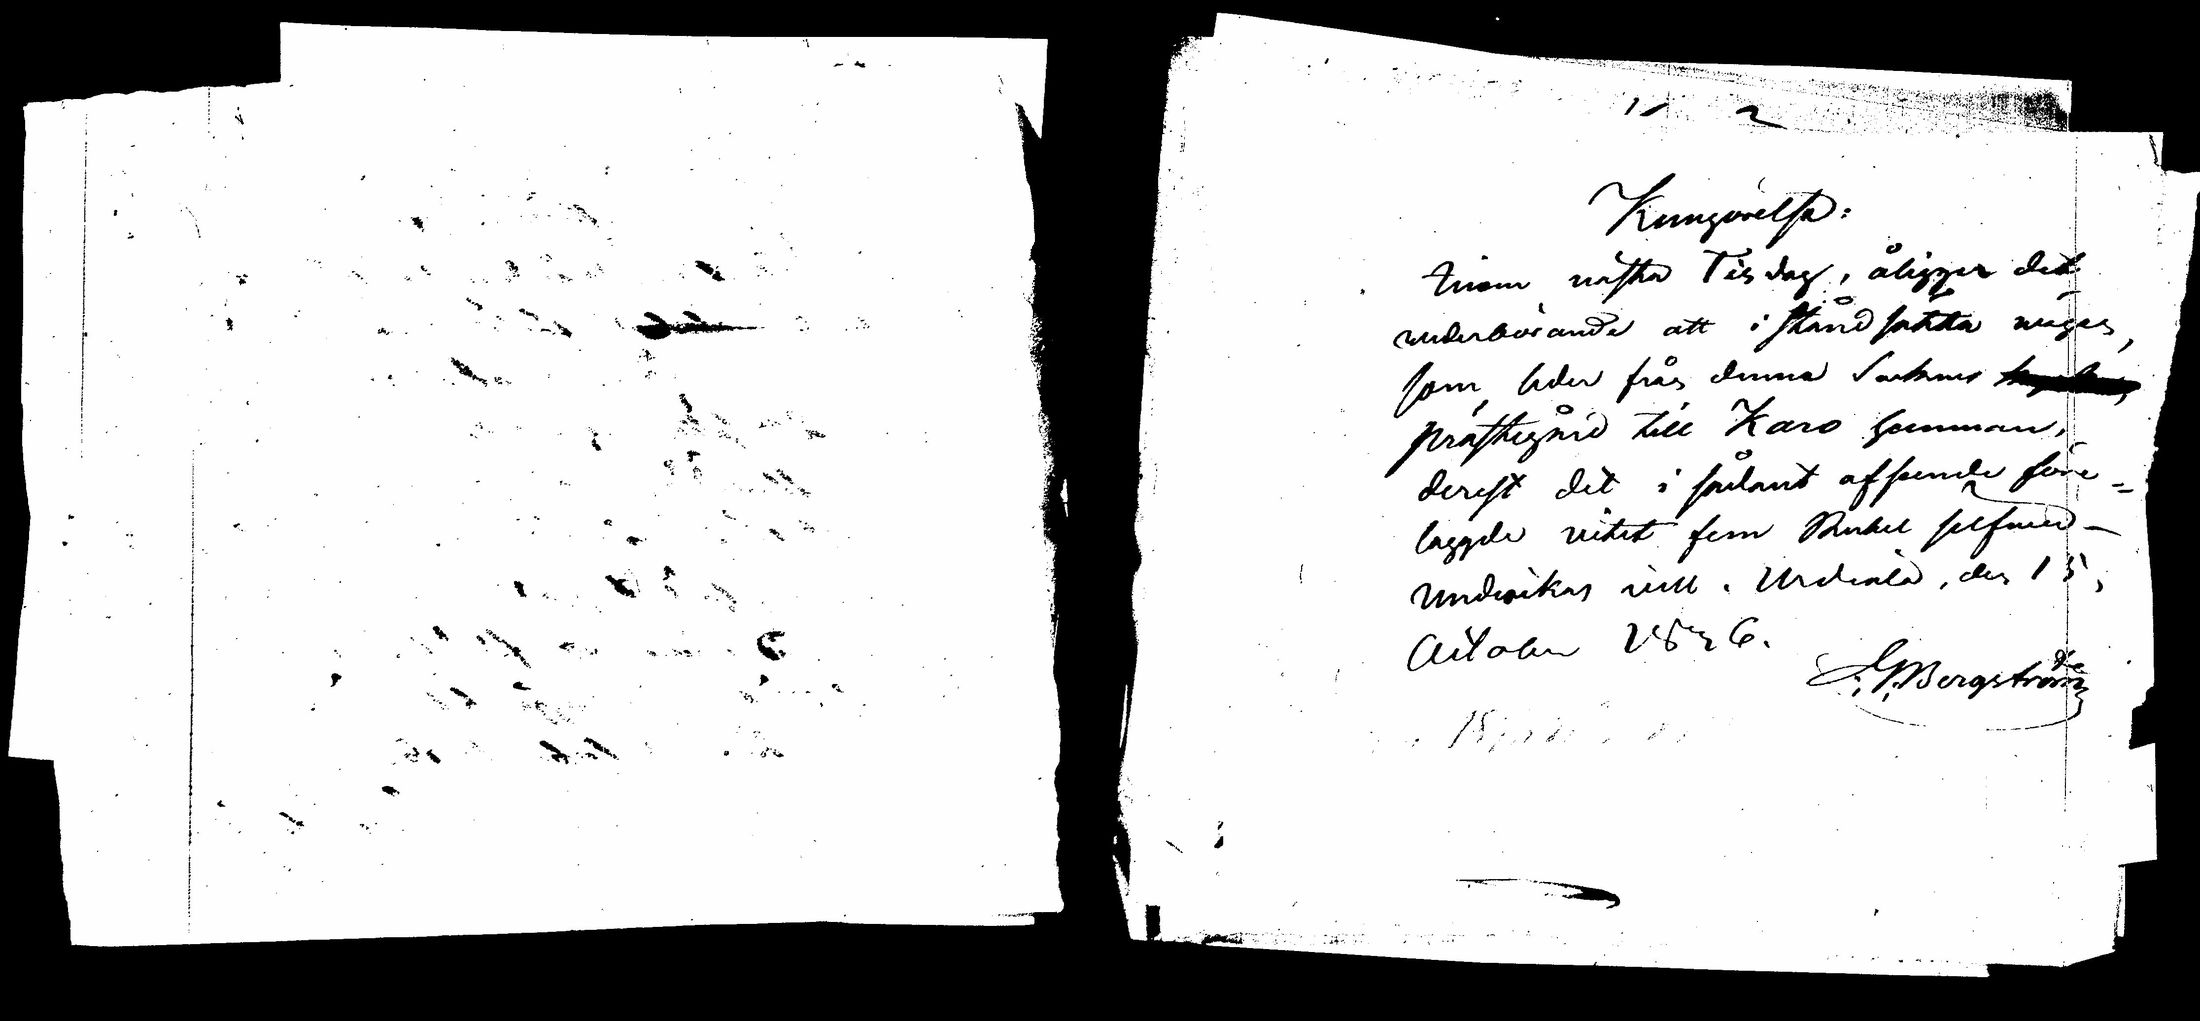 Kungörelse:
Innom nästa Tisdag, åligger det
vederbörande att i stånd sätta vägen,
som leder från denna Sockens
prästegård till Karo hemman,
derest det i sådant afseende före=
laggde vitet fem Rubel silfver
undvikas vill. Urdiala, den 15,
October 1836.
Bergström